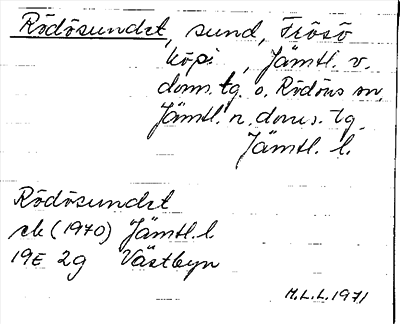 Rödösundet, sund, Frösö
köpi , Jämtl. v.
doms. tg. o. Rödöns sn,
Jämtl. n. doms. tg
Jämtl. l.
Rödösundet
ek (1970) Jämtl. l
19E 2g Västbyn
M.L.L. 1971